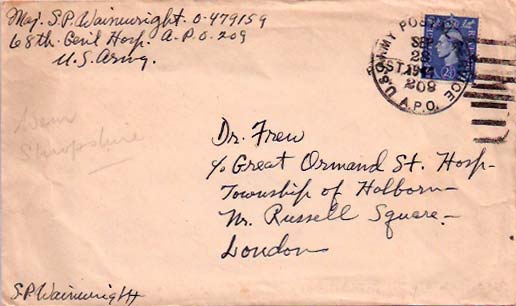 Maj. S.P. Wainwright. O-479159
68th. Genl Hosp. A.P.O. 209
U.S. Army.
U.S. ARMY POSTAL SERVICE
SEP
22
1944
209
A.P.O.
Wem
Shropshire
Dr. Frew
c/o Great Ormand St. Hosp-
Township of Holborn-
Nr. Russell Square.-
London
S.P. Wainwright